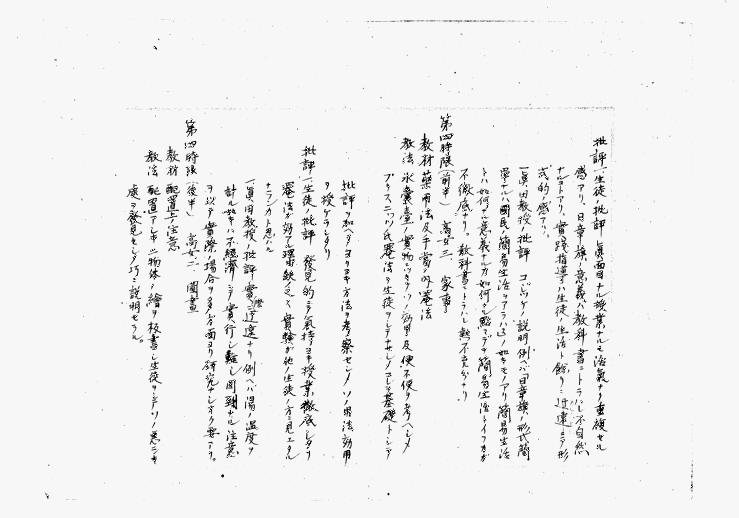 批評 生徒ノ批評 眞面目ナル授業ナルモ活氣ナク重複セル
感アリ、日章旗ノ意義ハ教科書ニトラハレ不自然
ナルコトアリ、實踐指導ハ生徒ノ生活ト餘リニ迂遠ニテ形
式的ノ感アリ。
一眞田教授ノ批評 ノ説明例ヘバ日章旗ノ形式簡
單ナルハ國民ノ簡易生活ヲアラハス如キモノアリ簡易生活
トハ如何ナル意義ナルカ如何ナル點マデヲ簡易生活トイフカガ
不徹底ナリ、教科書ニトラハレ熱不充分ナリ
第四時限(前半) 高女三、家事
教材 藥用法及手當ノ内 罨法
教法 氷嚢臺ノ實物ニツキテソノ効用及便不便ヲ考ヘシメ
プリスニッツ氏罨法ヲ生徒ヲシテナサシメコレヲ基礎トシテ
批評ヲ加ヘテヨリヨキ方法ヲ考察セシメソノ用法効用
ヲ授ケラレタリ
批評 一、生徒ノ批評 發見的ニテ氣持ヨキ授業、徹底シタリ
罨法ガ好ク理由缺乏シ、實驗ガ他ノ生徒ノ方ニ見エタル
ナランカト思ハル
一眞田教授ノ批評 實際ニ迂遠ナリ例ヘバ湯ノ温度ヲ
計ル如キハ不經濟ニテ實行シ難シ周到ナル注意
ヲ以テ實際ノ場合ヲ多方面ヨリ研究シオク要アリ。
第四時限(後半) 高女二、圖畫
教材 配置上ノ注意
教法 配置アシキ二物体ノ繪ヲ板書シ生徒ヲシテソノ悪シキ
處ヲ發見セシメ巧ニ説明セラル。